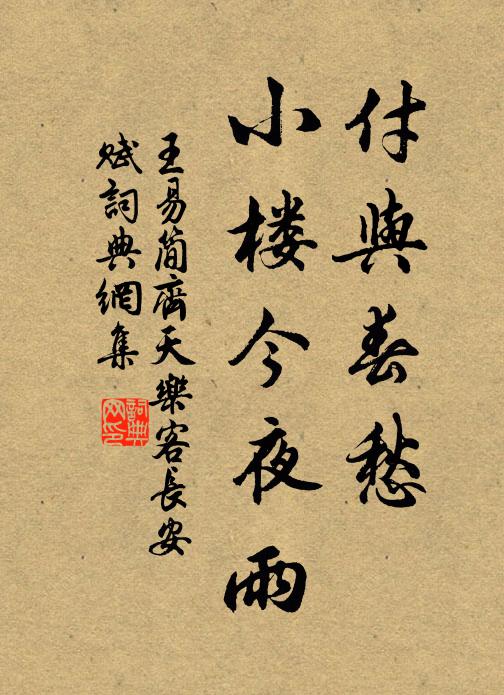 付與春愁
小楼今夜雨
王易簡齊天樂客長安
賦詞典網集
詞典
网印